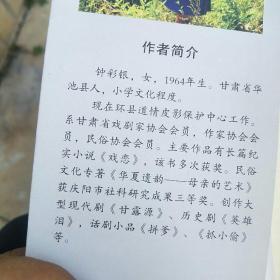 作者简介
钟彩银，女，1964年生。甘肃省华
池县人，小学文化程度。
现在环县道情皮影保护中心工作。
系甘肃省戏剧家协会会员，作家协会会
员，民俗协会会员。主要作品有长篇纪
实小说《戏恋》，该书多次获奖。民俗
文化专著《华夏遗韵——母亲的艺术》
获庆阳市社科研究成果三等奖。创作大
型现代剧《甘露源》、历史剧《英雄
泪》，话剧小品《拼爹》、《抓小偷》
等。